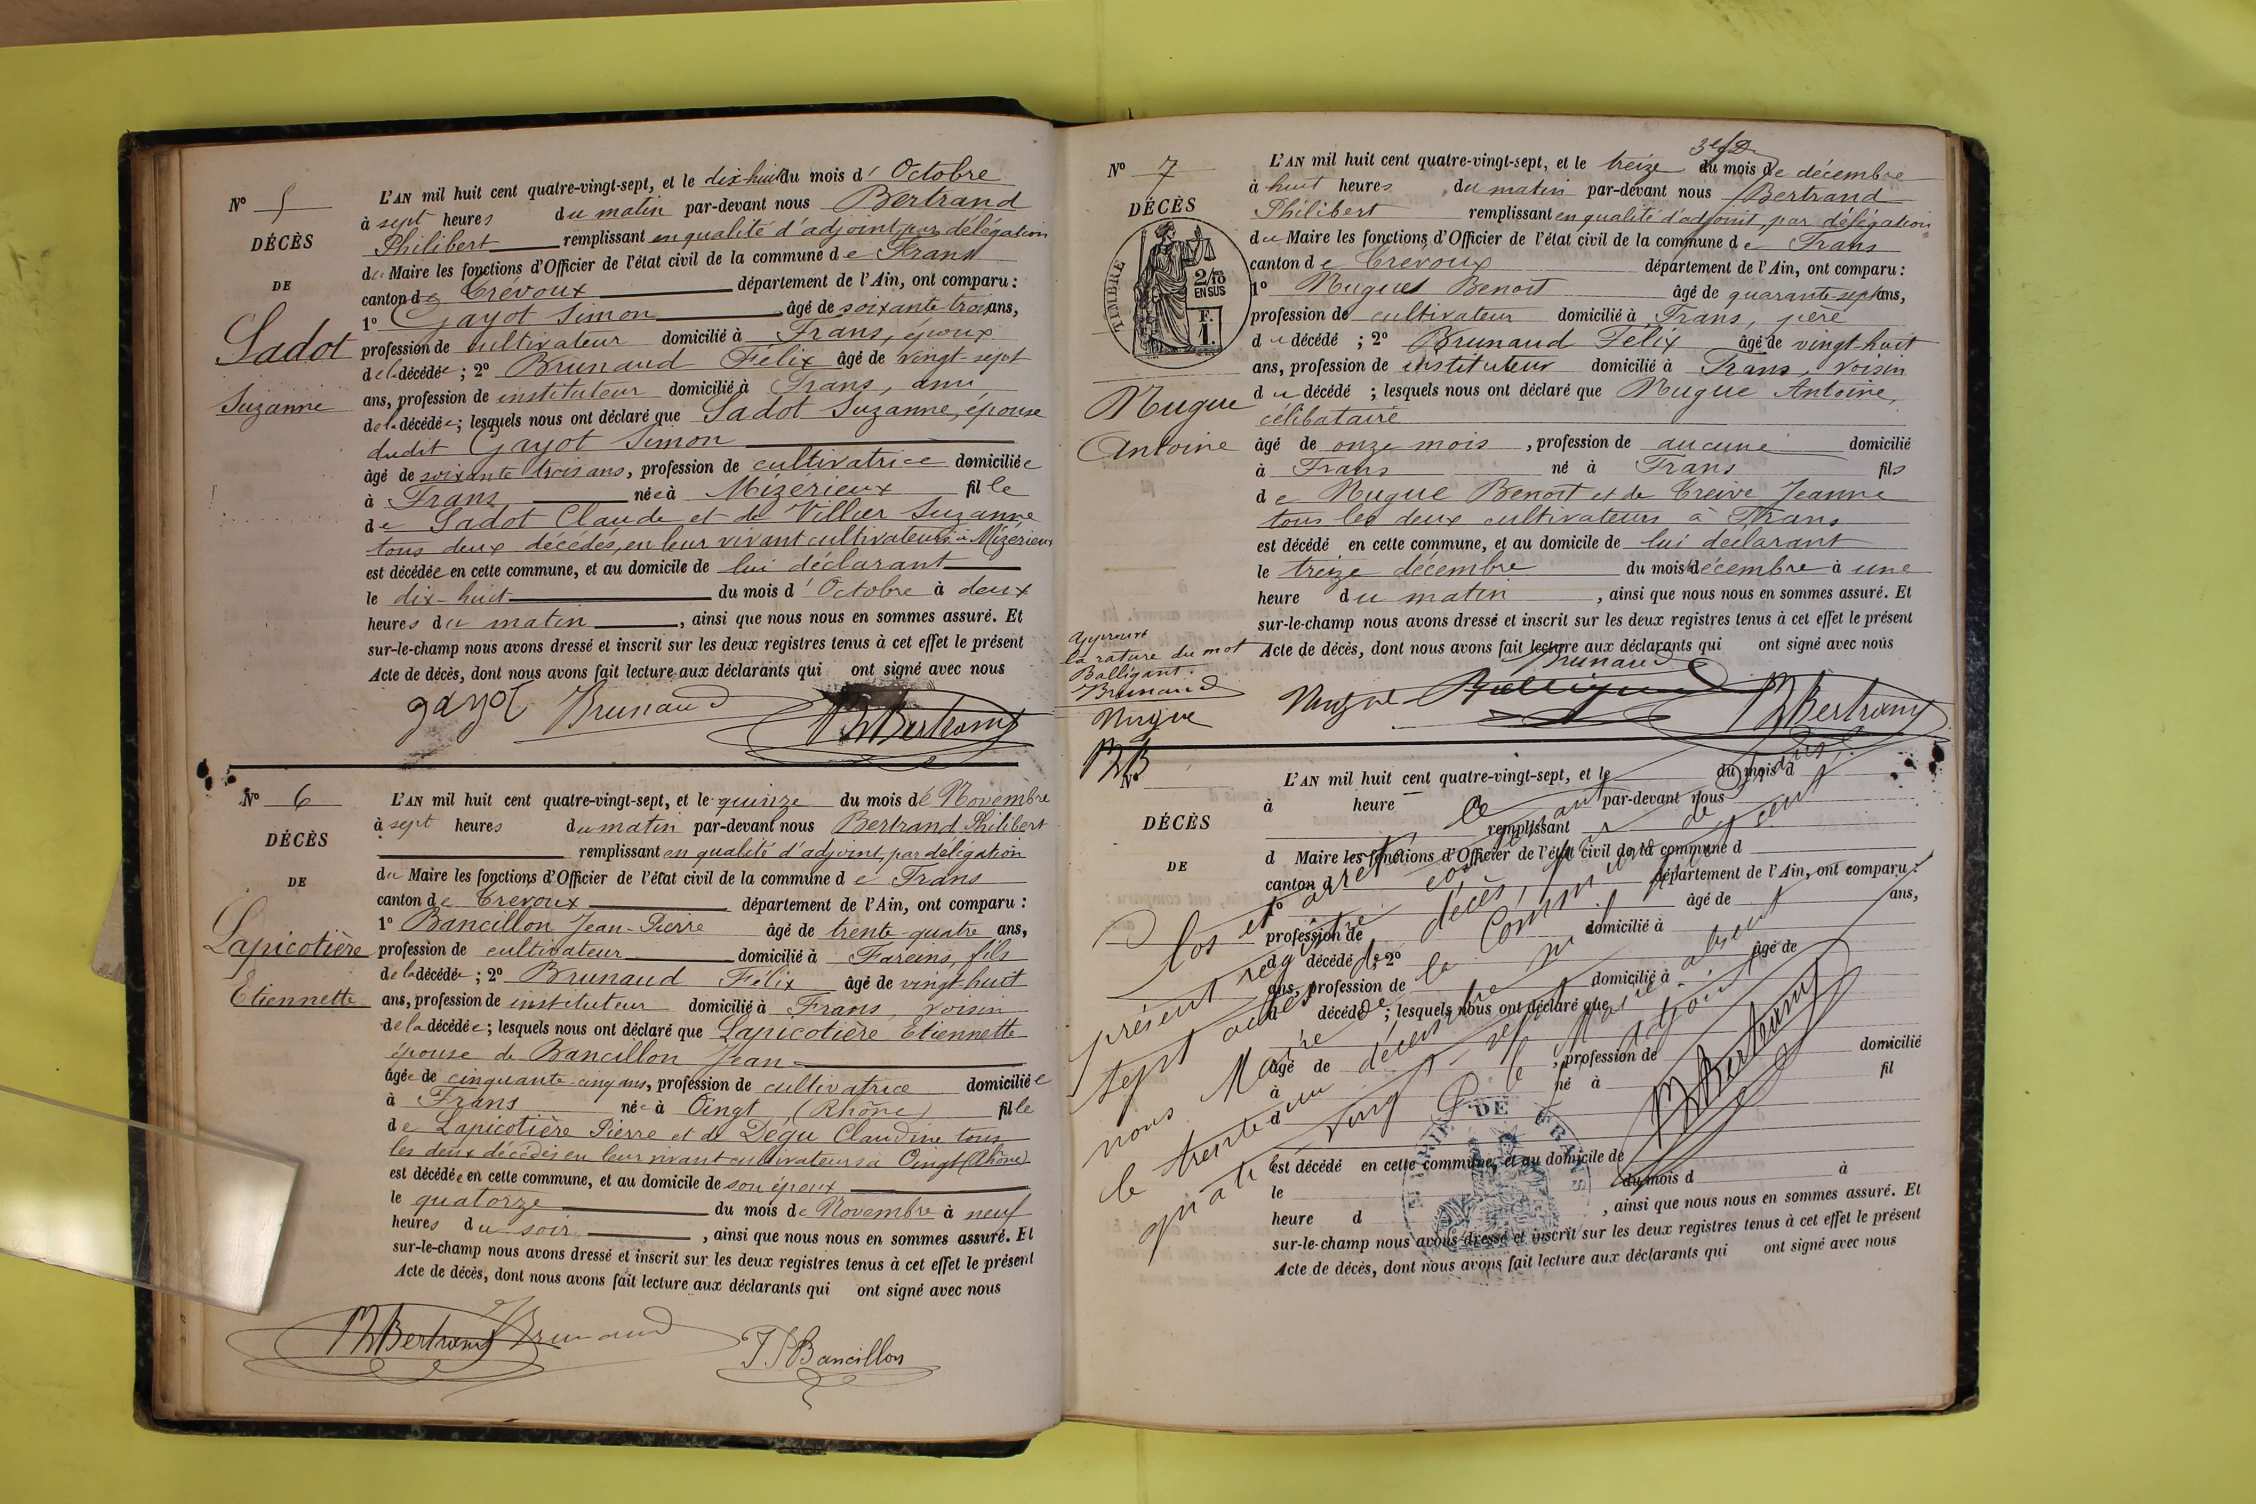 N° 5
DÉCÈS
DE
Sadot
Suzanne
L'AN mil huit cent quatre-vingt-sept, et le dix-huit du mois d'Octobre
à sept heures du matin par-devant nous Bertrand
Philibert remplissant en qualité d'adjoint, par délégation
du Maire les fonctions d'Officier de l'état civil de la commune de Frans
canton de Trévoux département de l'Ain, ont comparu :
1° Gayot Simon âgé de soixante-trois ans,
profession de cultivateur domicilié à Frans, époux
de la décédée ; 2° Brunaud Félix âgé de vingt-sept
ans, profession de instituteur domicilié à Frans, ami
de la décédée ; lesquels nous ont déclaré que Sadot Suzanne, épouse
dudit Gayot Simon
âgé de soixante trois ans, profession de cultivatrice domiciliée
à Frans née à Mizérieux fille
de Sadot Claude et de Villier Suzanne
tous deux décédés, en leur vivant cultivateurs à Mizérieux
est décédée en cette commune, et au domicile de lui déclarant
le dix-huit du mois d'Octobre à deux
heures du matin, ainsi que nous nous en sommes assuré. Et
sur-le-champ nous avons dressé et inscrit sur les deux registres tenus à cet effet le présent
Acte de décès, dont nous avons fait lecture aux déclarants qui ont signé avec nous
gayot Brunaud Bertrand
N° 6
DÉCÈS
DE
Lapicotière
Etiennette
L'AN mil huit cent quatre-vingt-sept, et le quinze du mois de Novembre
à sept heures du matin par-devant nous Bertrand Philibert
remplissant en qualité d'adjoint, par délégation
du Maire les fonctions d'Officier de l'état civil de la commune de Frans
canton de Trevoux département de l'Ain, ont comparu :
1° Bancillon Jean-Pierre âgé de trente-quatre ans,
profession de cultivateur domicilié à Fareins, fils
de la décédée ; 2° Brunaud Félix âgé de vingt-huit
ans, profession de instituteur domicilié à Frans, voisin
de la décédée ; lesquels nous ont déclaré que Lapicotière Etiennette
épouse de Bancillon Jean
âgée de cinquante-cinq ans, profession de cultivatrice domiciliée
à Frans née à Oingt (Rhône) fille
de Lapicotière Pierre et de Dégu Claudine tous
les deux décédés en leur vivant cultivateurs à Oingt (Rhône)
est décédée en cette commune, et au domicile de son époux
le quatorze du mois de Novembre à neuf
heures du soir, ainsi que nous nous en sommes assuré. Et
sur-le-champ nous avons dressé et inscrit sur les deux registres tenus à cet effet le présent
Acte de décès, dont nous avons fait lecture aux déclarants qui ont signé avec nous
Bertrand Brunaud J P Bancillon
N° 7
DÉCÈS
TIMBRE
2/10
EN SUS
F.
1.
Nugue
Antoine
L'AN mil huit cent quatre-vingt-sept, et le treize du mois de décembre
à huit heures du matin par-devant nous Bertrand
Philibert remplissant en qualité d'adjoint, par délégation
du Maire les fonctions d'Officier de l'état civil de la commune de Frans
canton de Trevoux département de l'Ain, ont comparu :
1° Nugues Benoit âgé de quarante-sept ans,
profession de cultivateur domicilié à Frans, père
du décédé ; 2° Brunaud Félix âgé de vingt-huit
ans, profession de instituteur domicilié à Frans, voisin
du décédé ; lesquels nous ont déclaré que Nugue Antoine,
célibataire
âgé de onze mois, profession de aucune domicilié
à Frans né à Frans fils
de Nugue Benoît et de Treive Jeanne
tous les deux cultivateurs à Frans
est décédé en cette commune, et au domicile de lui déclarant
le treize décembre du mois décembre à une
heure du matin, ainsi que nous nous en sommes assuré. Et
sur-le-champ nous avons dressé et inscrit sur les deux registres tenus à cet effet le présent
Acte de décès, dont nous avons fait lecture aux déclarants qui ont signé avec nous
Approuvé
la rature du mot
Balligant.
Brunaud
Nugue
Brunaud
Nugue Bertrand
N°
DÉCÈS
DE
L'AN mil huit cent quatre-vingt-sept, et le du mois d
à heure par-devant nous
remplissant
d Maire les fonctions d'Officier de l'état civil de la commune d
canton d département de l'Ain, ont comparu :
1° âgé de ans,
profession de domicilié à
d décédé ; 2° âgé de
ans, profession de domicilié à
d décédé ; lesquels nous ont déclaré que
âgé de , profession de domicilié
à né à fil
d
est décédé en cette commune, et au domicile de
le du mois d à
heure d , ainsi que nous nous en sommes assuré. Et
sur-le-champ nous avons dressé et inscrit sur les deux registres tenus à cet effet le présent
Acte de décès, dont nous avons fait lecture aux déclarants qui ont signé avec nous
Clos et arrêté, le
présent registre contenant
sept actes de décès, par
nous Maire de la commune de
le trente un décembre mil huit cent
quatre vingt-sept
P. le Maire absent
adjoint
Bertrand
MAIRIE DE FRANS